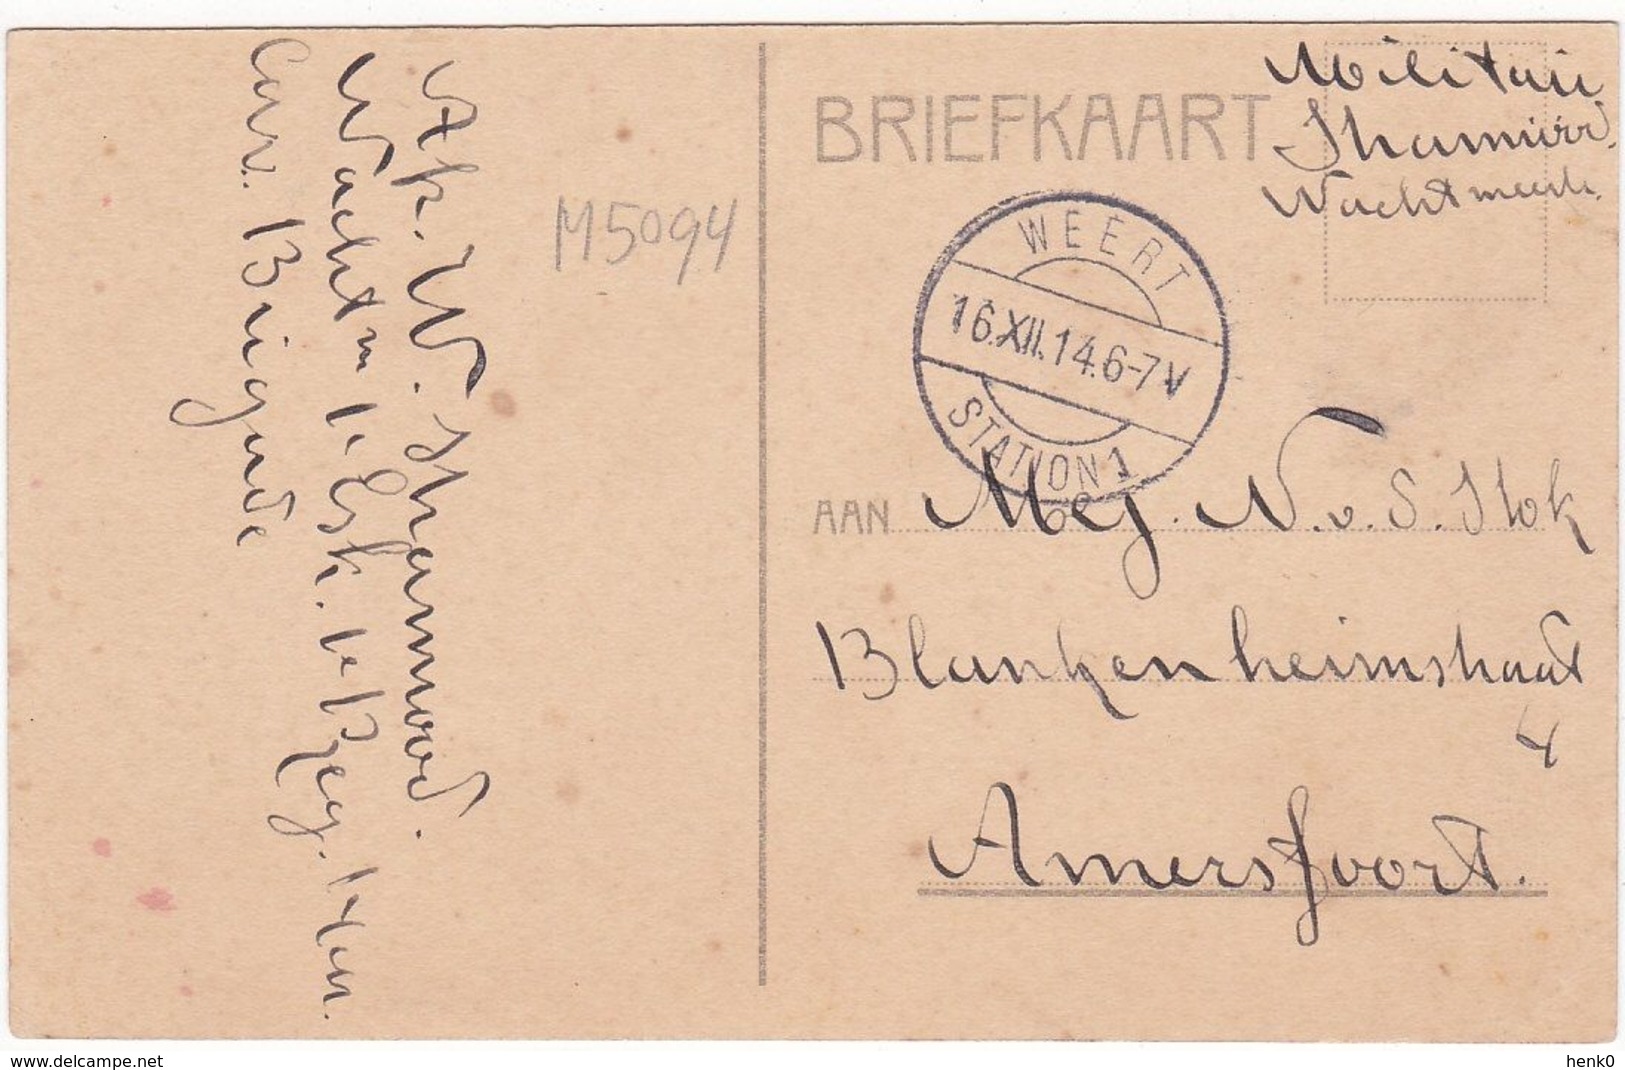 Afz. W. Stramrood.
Wachtm 1e Esk. 1e Reg. Huz.
Cav. Brigade
M5094
BRIEFKAART
Militair
Wachtmeester.
WEERT
16.XII.14.6-7V
STATION 1
AAN Mej. N. v. S. Stok
Blankenheimstraat
4
Amersfoort.
www.delcampe.net
henk0